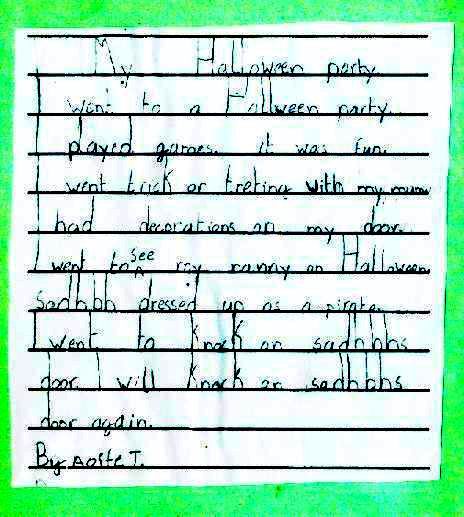 My Halloween party
I went to a Halween party.
I played games. it was fun.
I went trick or treting with my mum
I had decorations on my door.
I went to see my nanny on Halloween
Sadhbh dressed up as a pirate.
I went to knock on sadhbhs
door. I will knock on sadhbhs
door again.
By Aoife T.